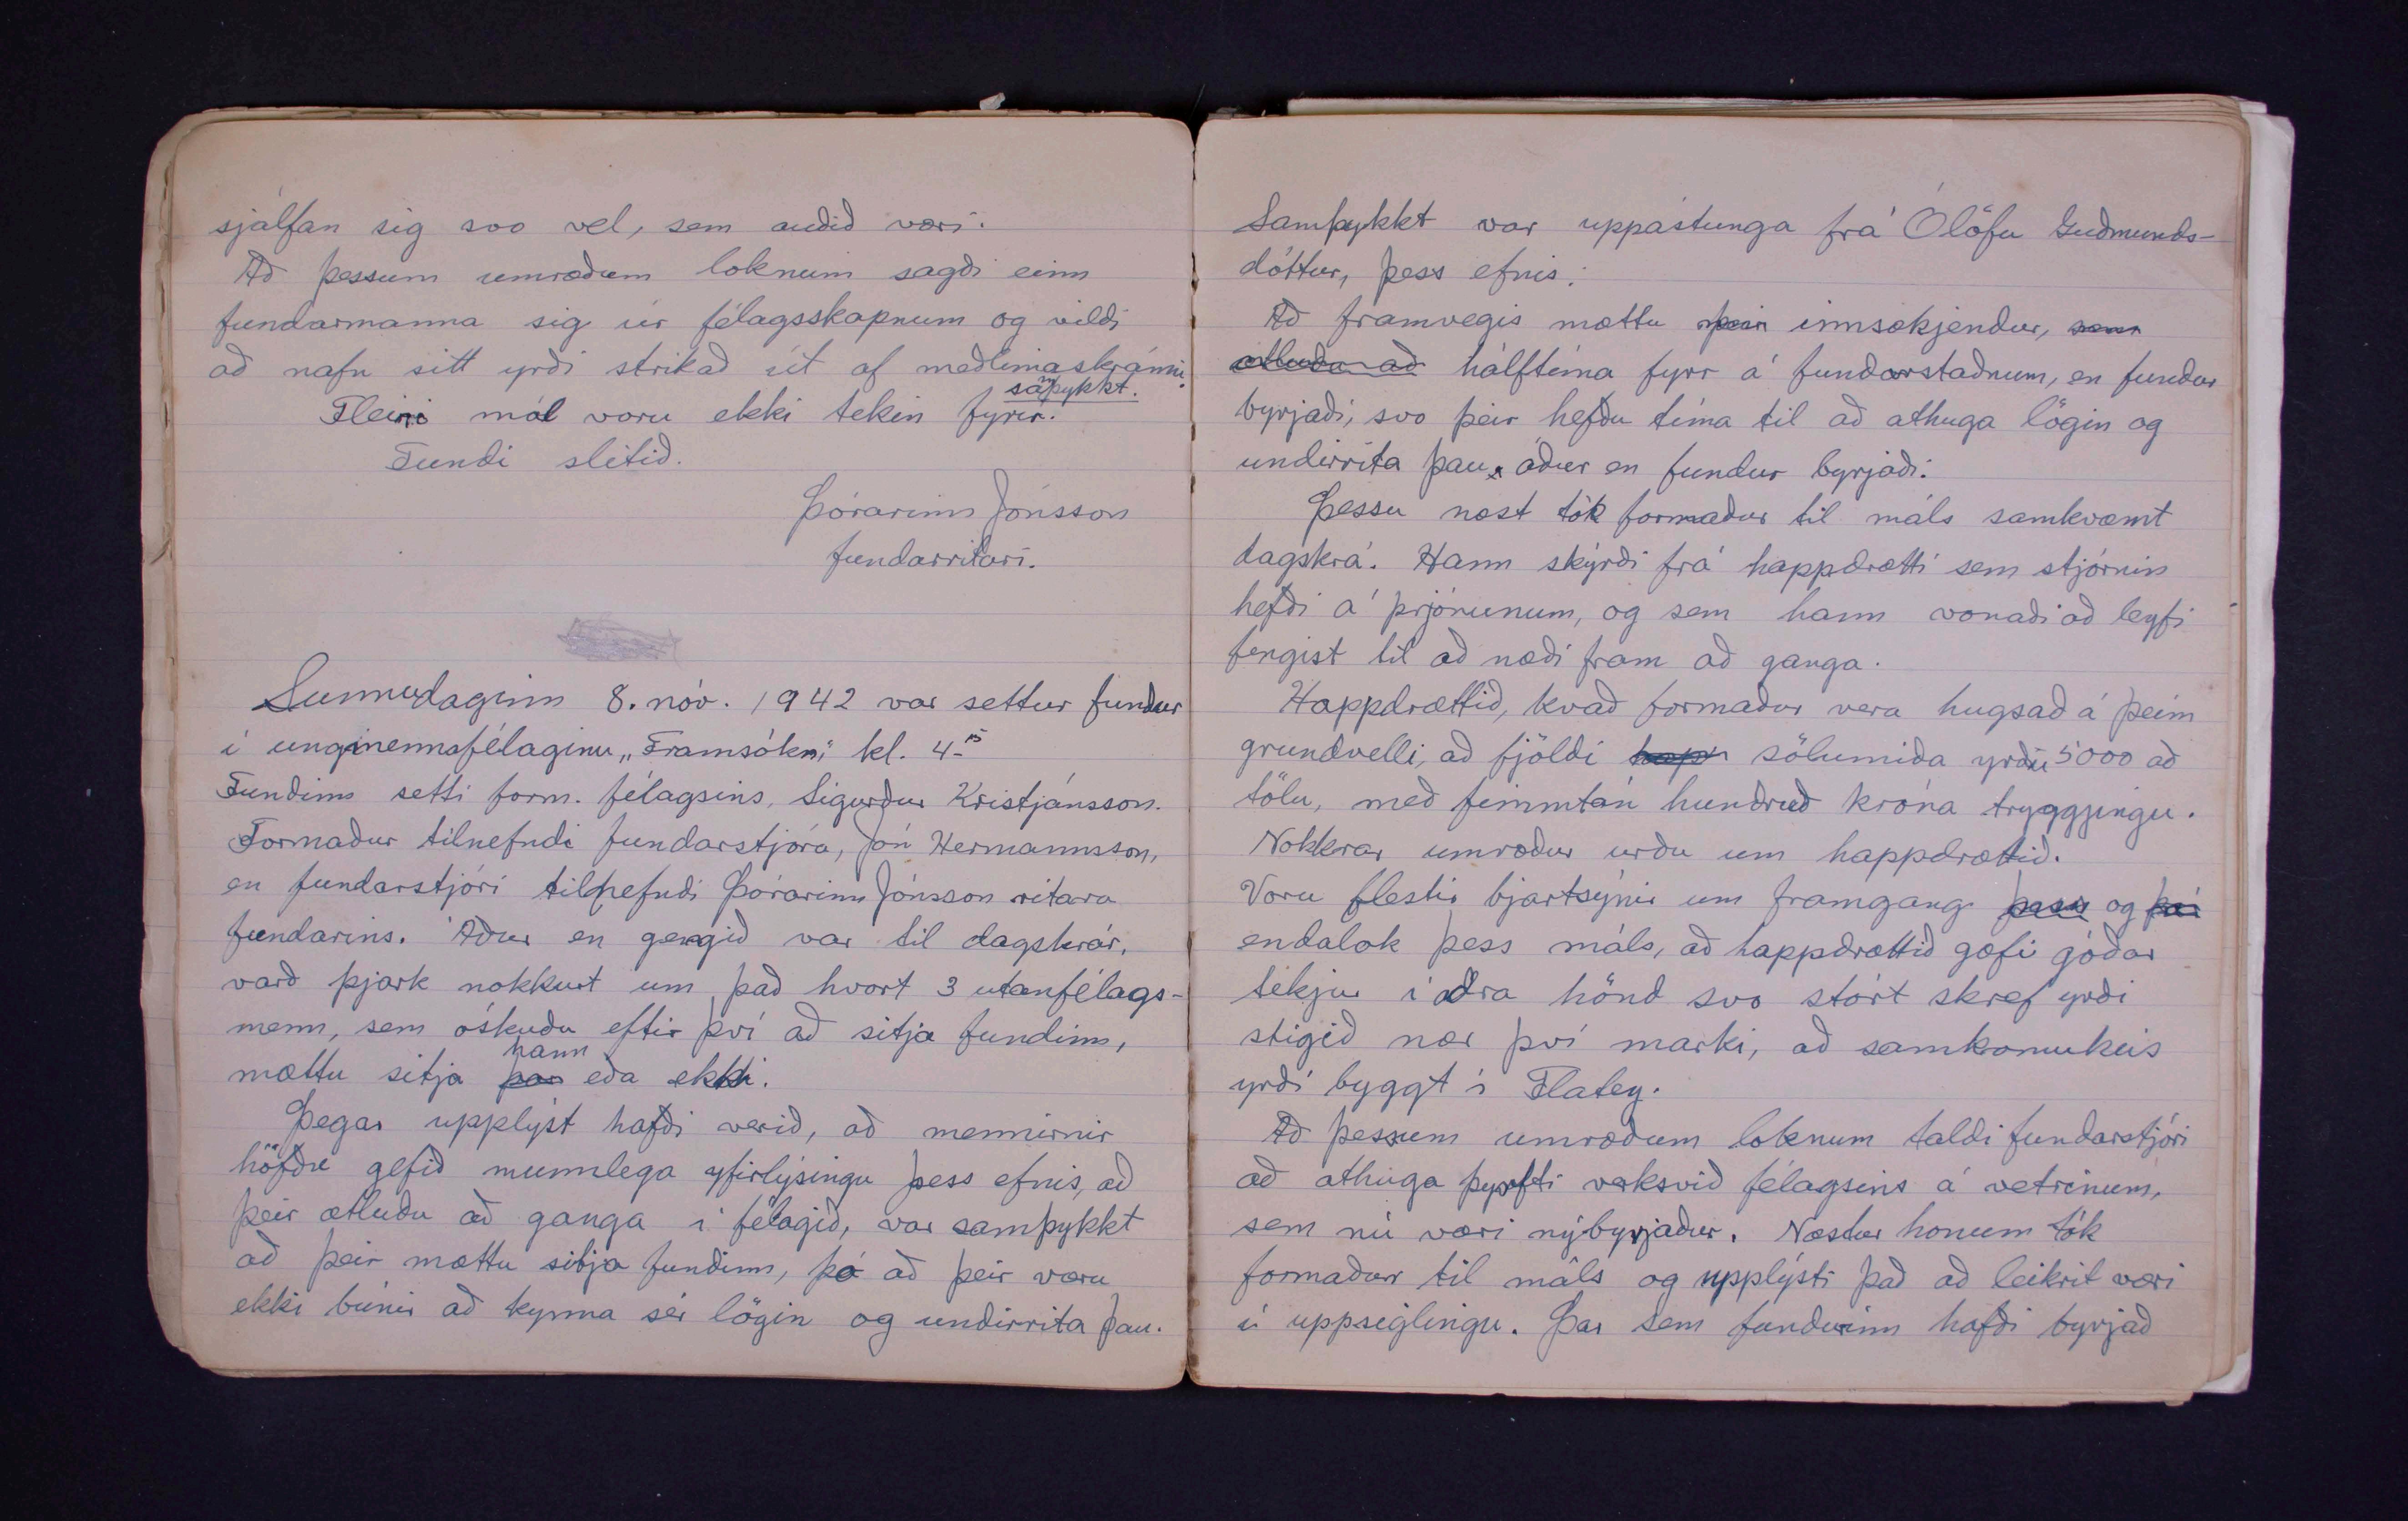 sjálfan sig svo vel, sem auðið væri.
Að þessum umræðum loknum sagði einn
fundarmanna sig úr félagsskapnum og vildi
að nafn sitt yrði strikað út af meðlimaskránni.
samþykkt.
Fleiri mál voru ekki tekin fyrir.
Fundi slitið.
Þórarinn Jónsson
fundarritari.
Sunnudaginn 8. nóv. 1942 var settur fundur
í ungmennafélaginu „Framsókn“, kl. 4-15
Fundinn setti form. félagsins, Sigurður Kristjánsson.
Formaður tilnefndi fundarstjóra, Jón Hermannsson,
en fundarstjóri tilnefndi Þórarinn Jónsson ritara
fundarins. Áður en gengið var til dagskrár,
varð þjark nokkurt um það hvort 3 utanfélags-
menn, sem óskuðu eftir því að sitja fundinn,
mættu sitja hann eða ekki.
Þegar upplýst hafði verið, að mennirnir
höfðu gefið munnlega yfirlýsingu þess efnis, að
þeir ætluðu að ganga í félagið, var samþykkt
að þeir mættu sitja fundinn, þó að þeir væru
ekki búnir að kynna sér lögin og undirrita þau.
Samþykkt var uppástunga frá Ólöfu Guðmunds-
dóttur, þess efnis:
Að framvegis mættu þeir innsækjendur, sem
ætluðu að hálftíma fyrr á fundarstaðnum, en fundur
byrjaði, svo þeir hefðu tíma til að athuga lögin og
undirrita þau, áður en fundur byrjaði.
Þessu næst tók formaður til máls samkvæmt
dagskrá. Hann skýrði frá happdrætti sem stjórnin
hefði á prjónunum, og sem hann vonaði að leyfi
fengist til að næði fram að ganga.
Happdrættið, kvað formaður vera hugsað á þeim
grundvelli, að fjöldi happ sölumiða yrðu 5000 að
tölu, með fimmtán hundruð króna tryggingu.
Nokkrar umræður urðu um happdrættið.
Voru flestir bjartsýnir um framgang þess og þá
endalok þess máls, að happdrættið gæfi góðar
tekjur í aðra hönd svo stórt skref yrði
stigið nær því marki, að samkomuhús
yrði byggt í Flatey.
Að þessum umræðum loknum taldi fundarstjóri
að athuga þyrfti verksvið félagsins á vetrinum,
sem nú væri nýbyrjaður. Næstur honum tók
formaður til máls og upplýsti það að leikrit væri
í uppsiglingu. Þar sem fundurinn hafði byrjað